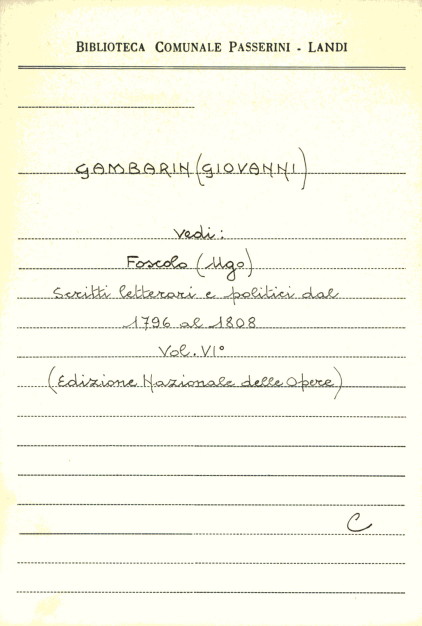 BIBLIOTECA COMUNALE PASSERINI - LANDI
GAMBARIN (GIOVANNI)
vedi:
Foscolo (Ugo)
Scritti letterari e politici dal
1796 al 1808
Vol. VI°
(Edizione Nazionale delle Opere)
C